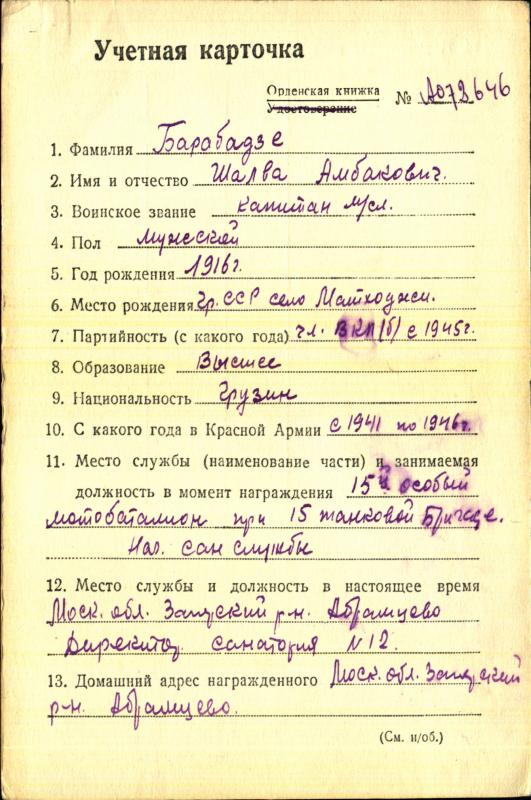 Учетная карточка
Орденская книжка
Удостоверение
№ А072646
1. Фамилия Барабадзе
2. Имя и отчество Шалва Амбакович.
3. Воинское звание капитан м/сл.
4. Пол мужской
5. Год рождения 1916г.
6. Место рождения Гр.ССР село Матходжи.
7. Партийность (с какого года) чл. ВКП(б) с 1945г.
8. Образование Высшее
9. Национальность Грузин
10. С какого года в Красной Армии с 1941 по 1946г.
11. Место службы (наименование части) и занимаемая
должность в момент награждения 15й особый
мотобаталион при 15 танковой Бригаде.
Нач. сан службы
12. Место службы и должность в настоящее время
Моск. обл. р-н. Абрамцево
Директор санатория N 12.
13. Домашний адрес награжденного Моск. обл.
р-н. Абрамцево.
(См. н/об.)